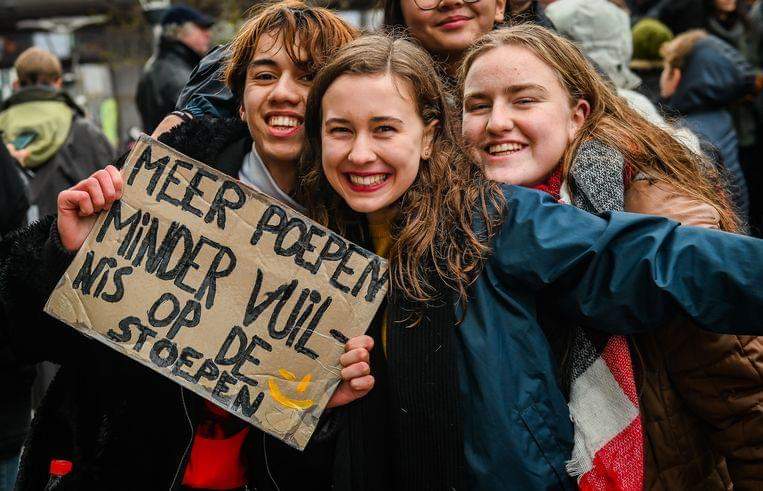 MEER POEPEN
MINDER VUIL-
NIS OP DE
STOEPEN